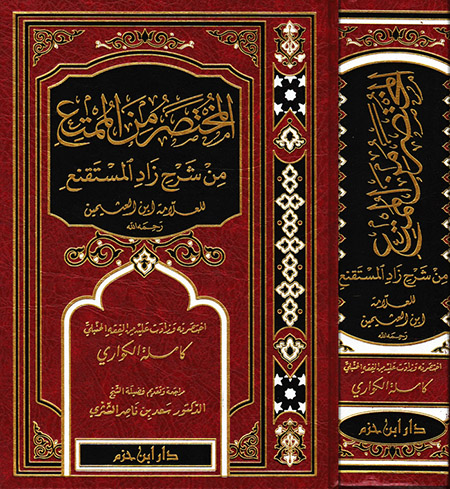 المختصر من الممتع
من شرح زاد المستقنع
للعلامة ابن العثيمين
رحمه الله
اختصرته وزادت عليه من الفقه الحنبلي
كاملة الكواري
مراجعة وتقديم فضيلة الشيخ
الدكتور سعد بن ناصر الشثري
دار ابن حزم
المختصر من الممتع
من شرح زاد المستقنع
للعلامة
ابن العثيمين
رحمه الله
اختصرته وزادت عليه من الفقه الحنبلي
كاملة الكواري
دار ابن حزم